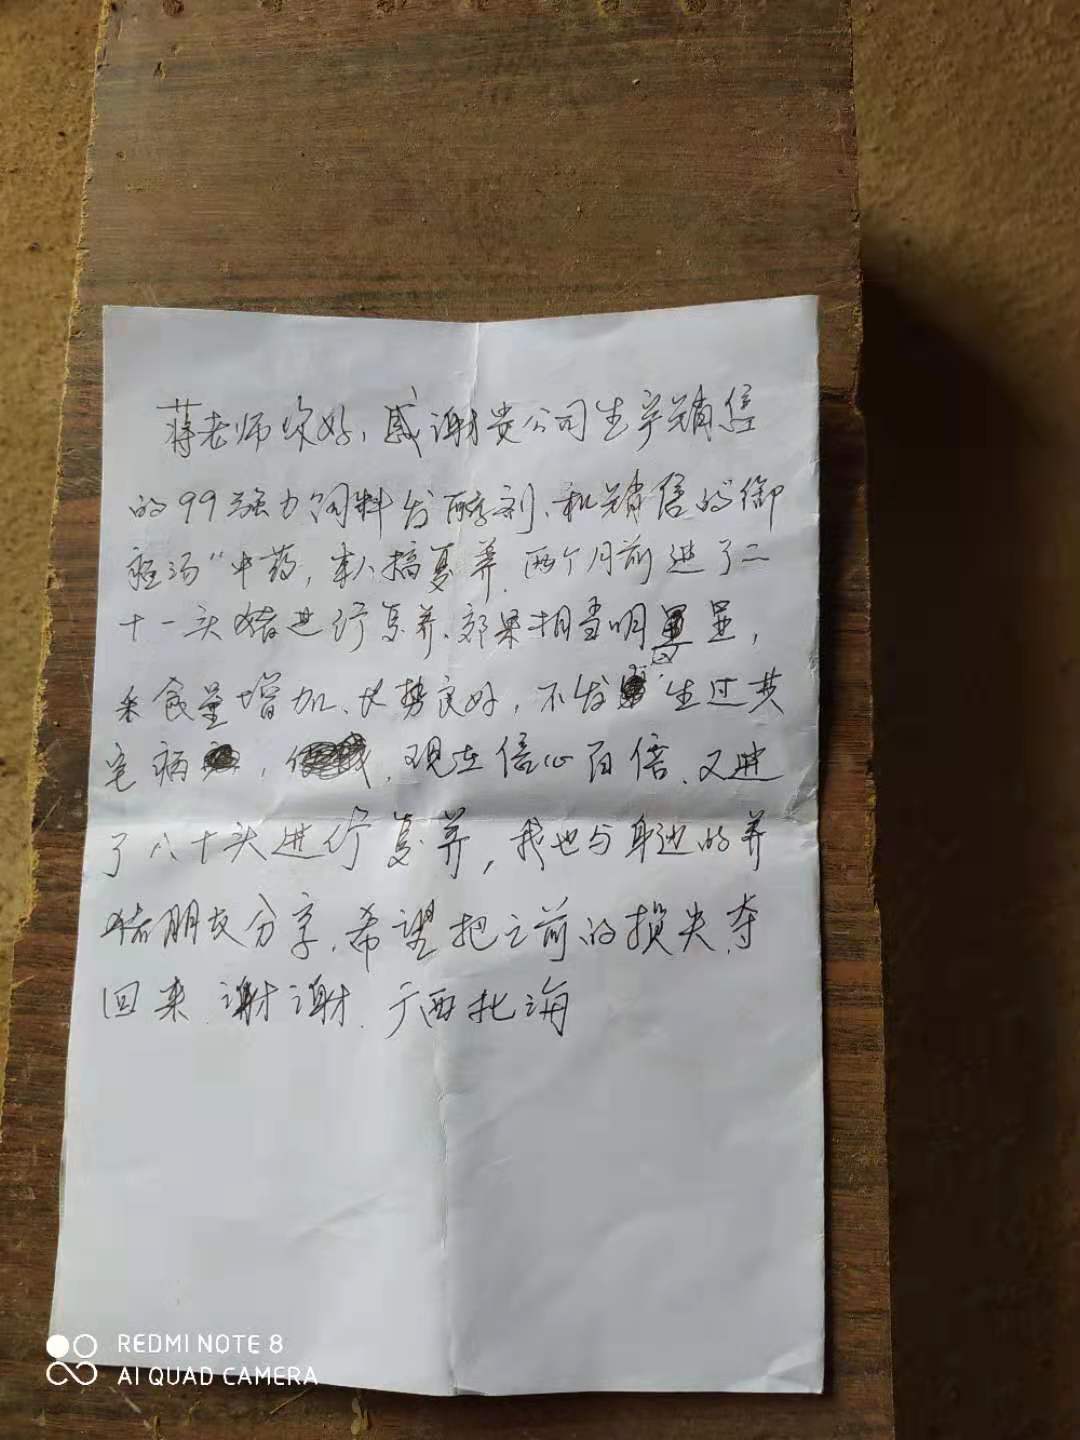 蒋老师你好，感谢贵公司生产销售
的99强力饲料发酵剂、和销售的“御
瘟汤”中药，本人搞复养，两个月前进了二
十一头猪进行复养、效果相当明显，
采食量增加、长势良好，不发生过其
它病，现在信心百倍、又进
了八十头进行复养，我也与身边的养
猪朋友分享，希望把之前的损失夺
回来，谢谢，广西北海
REDMI NOTE 8
AI QUAD CAMERA